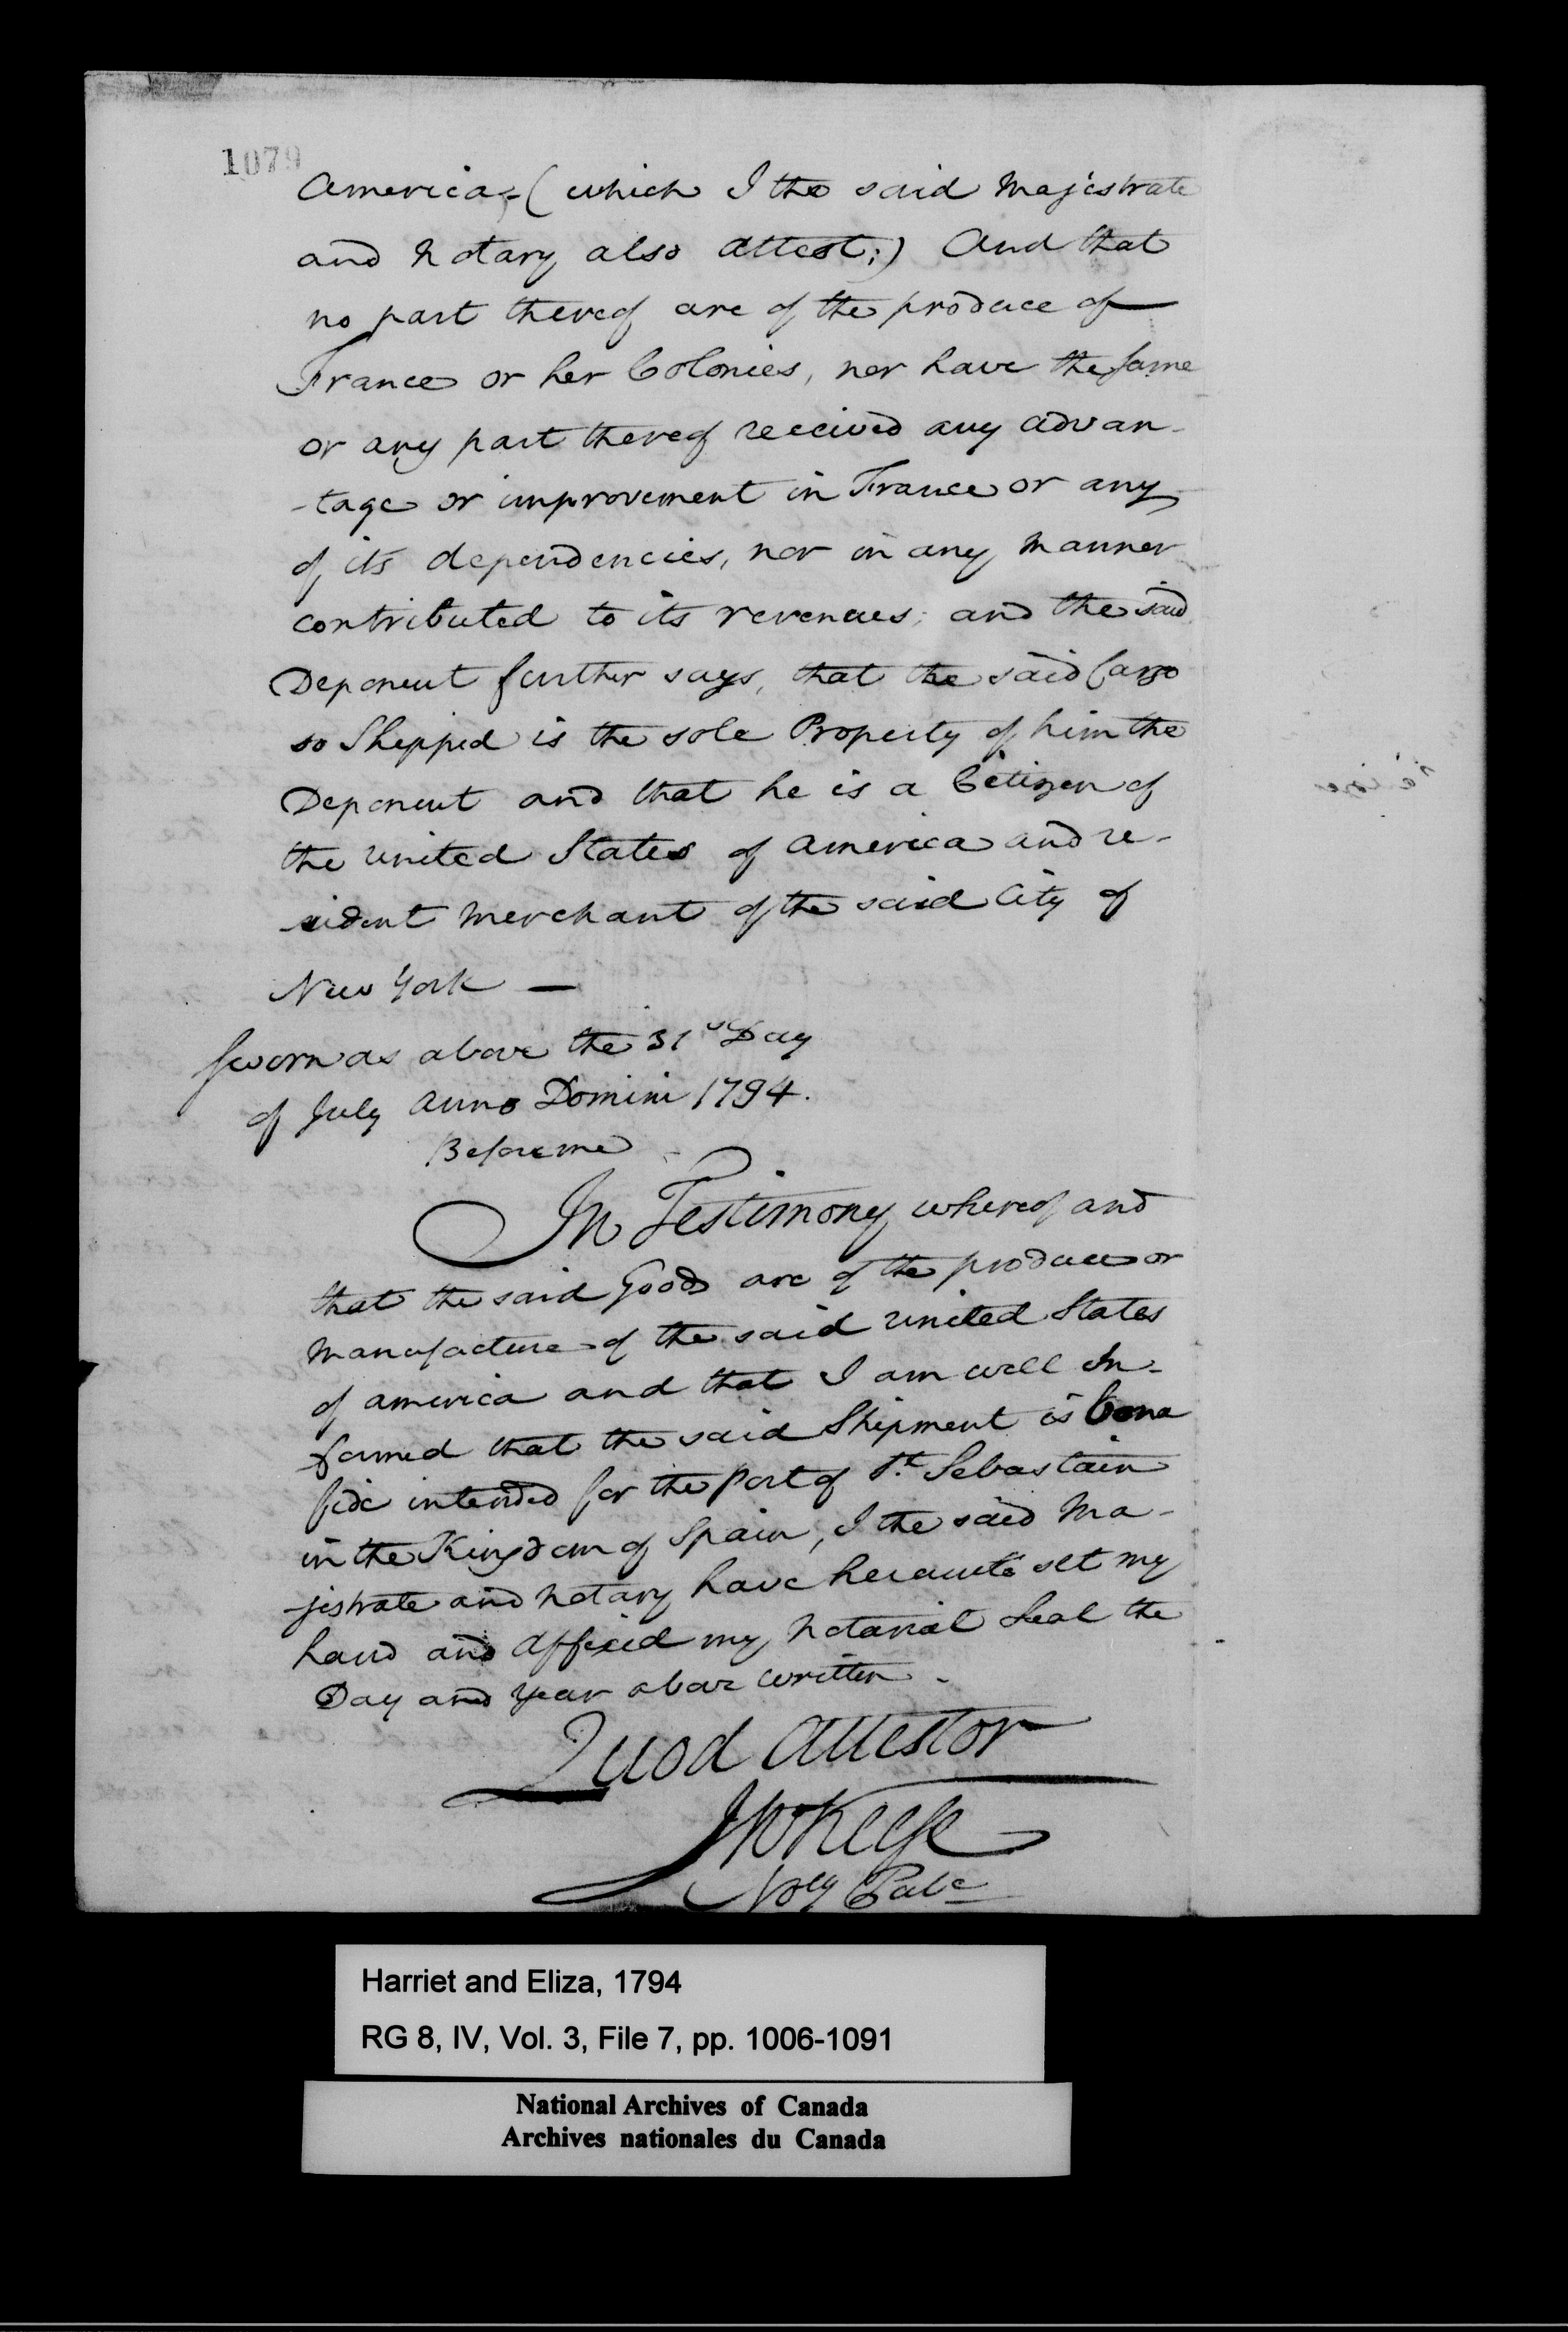 1079
America, (which I the said Majestrate
and Notary also attest;) And that
no part thereof are of the produce of
France or her Colonies, nor have the same
or any part thereof received any advan-
-tage or improvement in France or any
of its dependencies, nor in any manner
contributed to its revenues; and the said
Deponent further says, that the said Cargo
so Shipped is the sole Property of him the
Deponent and that he is a Citizen of
the United States of America and re-
-sident Merchant of the said City of
New York —
Sworn as above the 31st Day
of July Anno Domini 1794.
Before me
In Testimony whereof and
that the said Goods are of the produce or
Manufacture of the said United States
of America and that I am well In-
-formed that the said Shipment is bona
fide intended for the Port of St. Sebastain
in the Kingdom of Spain, I the said Ma-
-jestrate and Notary have hereunto set my
hand and affixed my Notarial Seal the
Day and Year above written.
Quod Attestor
JnoKeese
Noty Pubc
Harriet and Eliza, 1794
RG 8, IV, Vol. 3, File 7, pp. 1006-1091
National Archives of Canada
Archives nationales du Canada